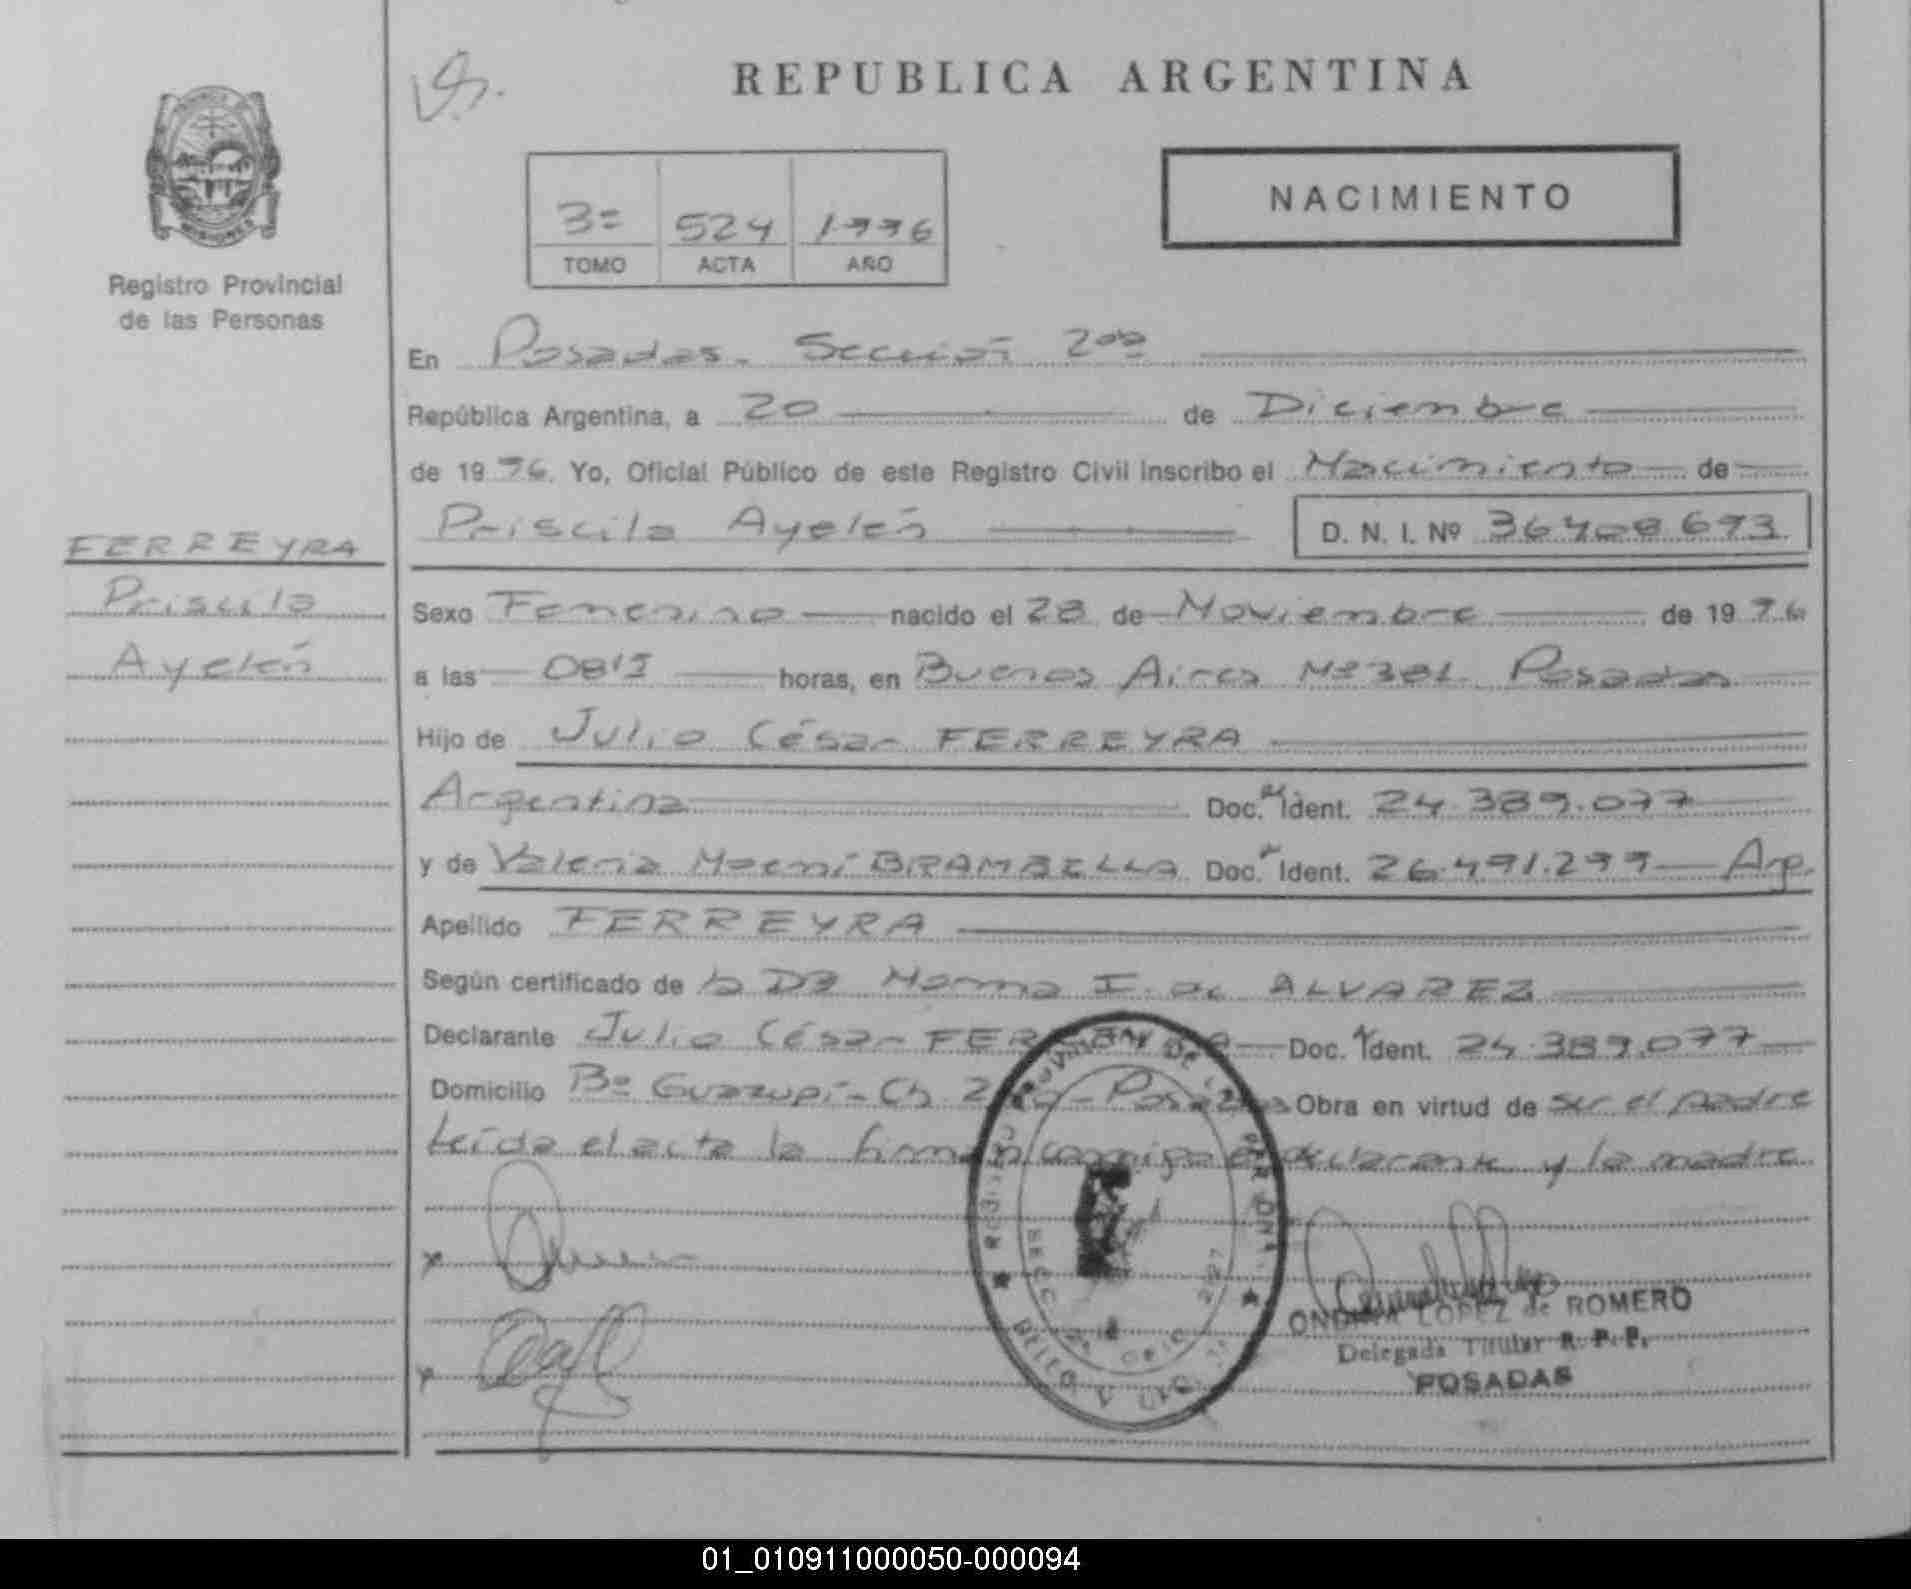 REPUBLICA ARGENTINA
NACIMIENTO
3º 524 1996
TOMO ACTA AÑO
MISIONES
Registro Provincial
de las Personas
En Posadas. Sección 2da
República Argentina, a 20 de Diciembre
de 1996. Yo, Oficial Público de este Registro Civil inscribo el Nacimiento de
Priscila Ayelén D. N. I. Nº 36.408.693
FERREYRA
Priscila
Ayelén
Sexo Femenino nacido el 28 de Noviembre de 1996
a las horas, en Buenos Aires Nº 381 Posadas
Hijo de Julio César FERREYRA
Argentina Doc. Ident. 24.389.077
y de Valeria Noemí BRAMBELLA Doc. Ident. 26.491.299 Arg.
Apellido FERREYRA
Según certificado de la Norma I. de ALVAREZ
Declarante Julio César FERREYRA Doc. Ident. 24.389.077
Domicilio Bº Guazupi - Ch. Posadas Obra en virtud de ser el padre
Leída el acta la firman conmigo el declarante y la madre
ONDINA LOPEZ de ROMERO
Delegada Titular R. P. P.
POSADAS
01_010911000050-000094